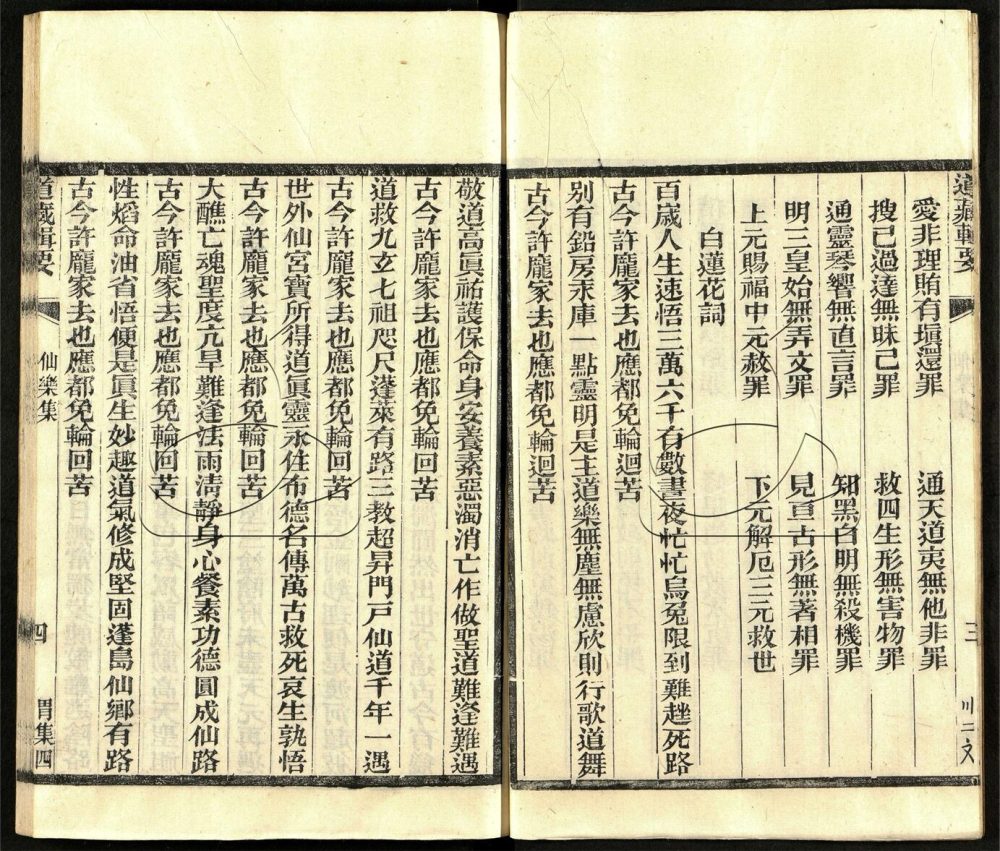 道藏輯要
三
愛非理賄有塡還罪　通天道夷無他非罪
搜己過達無昧己罪　救四生形無害物罪
通靈琴響無直言罪　知黑白明無殺機罪
明三皇始無弄文罪　見亘古形無著相罪
上元賜福中元赦罪　下元解厄三元救世
白蓮花詞
百歲人生速悟三萬六千有數晝夜忙忙烏兔限到難趓死路
古今許龐家去也應都免輪迴苦
别有鉛房汞庫一點靈明是主道樂無塵無慮欣則行歌道舞
古今許龐家去也應都免輪迴苦
敬道高眞祐護保命身安養素惡濁消亡作做聖道難逢難遇
古今許龐家去也應都免輪回苦
道救九玄七祖咫尺蓬萊有路三教超昇門戸仙道千年一遇
古今許龐家去也應都免輪回苦
世外仙宮寶所得道眞靈永住布德名傳萬古救死哀生孰悟
古今許龐家去也應都免輪回苦
大醮亡魂聖度亢旱難逢法雨清靜身心餐素功德圓成仙路
古今許龐家去也應都免輪回苦
性熖命油省悟便是眞生妙趣道氣修成堅固蓬島仙鄉有路
古今許龐家去也應都免輪回苦
道藏輯要
仙樂集
四
胃集四